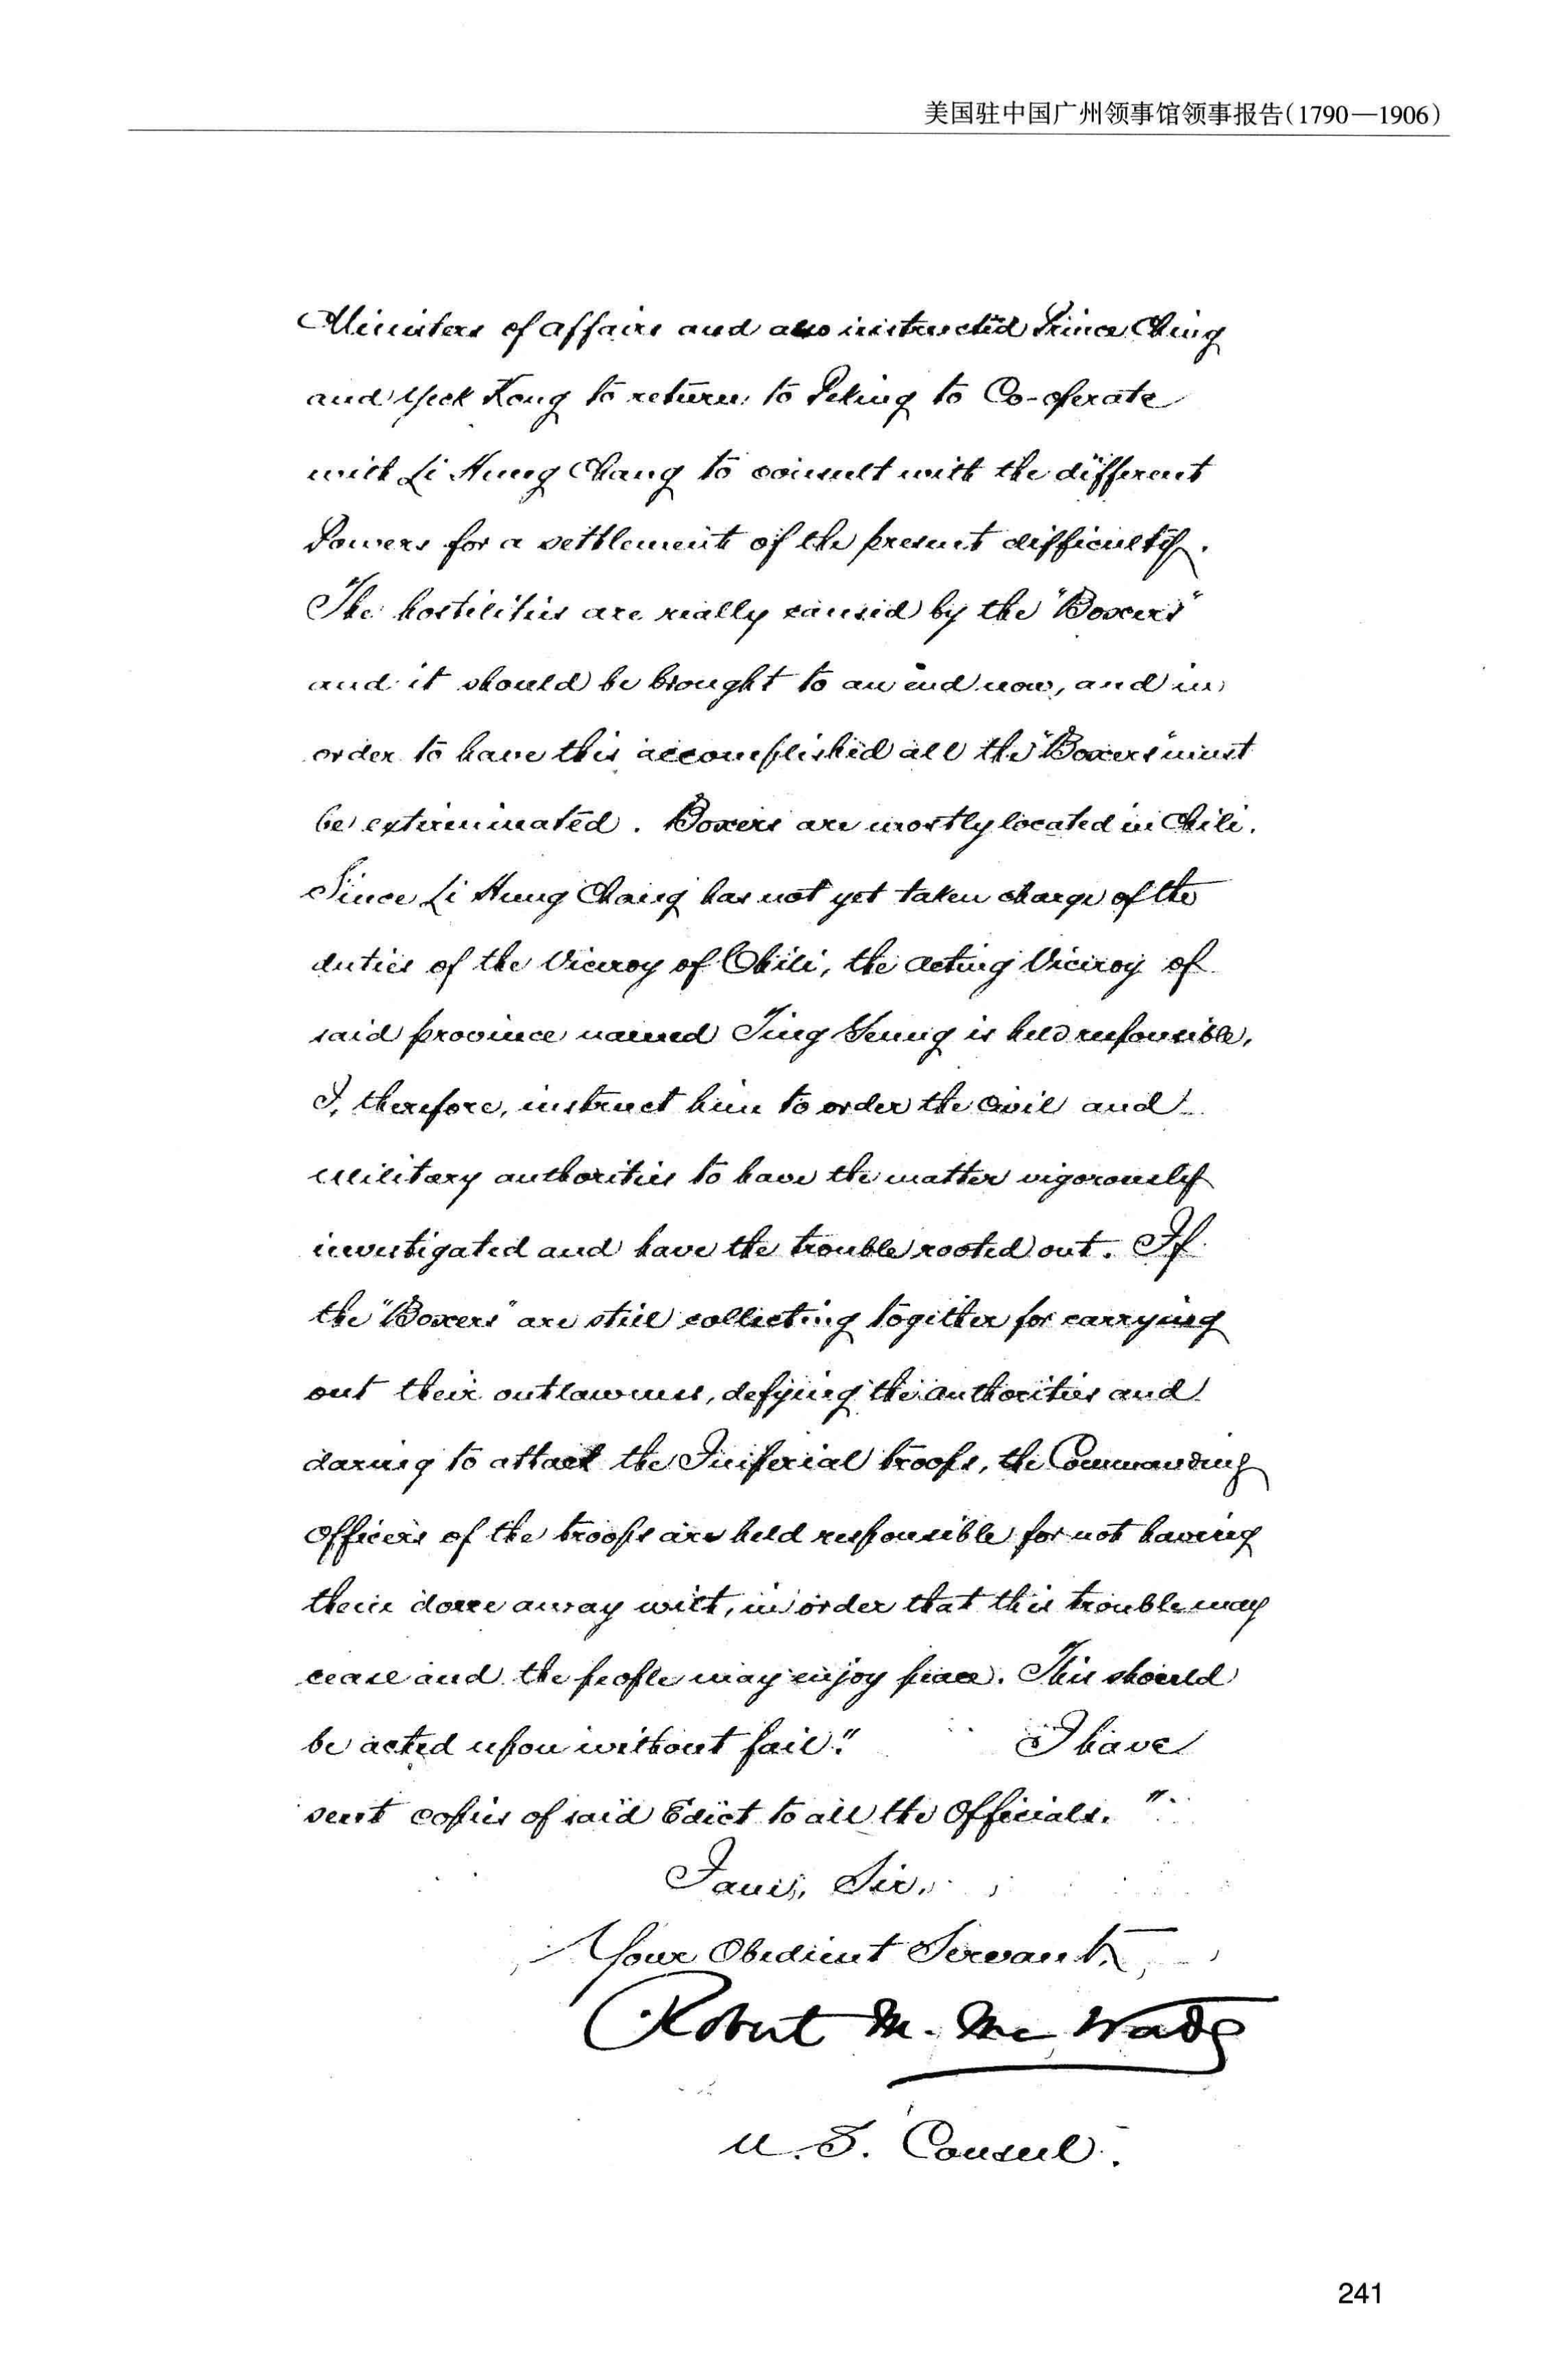 美国驻中国广州领事馆领事报告(1790—1906)
Ministers of affairs and also instructed Prince Ching
and Yeek Kong to return to Peking to Co-operate
with Li Hung Chang to consult with the different
Powers for a settlement of the present difficulty.
The hostilities are really caused by the "Boxers"
and it should be brought to an end now, and in
order to have this accomplished all the "Boxers" must
be exterminated. Boxers are mostly located in Chili.
Since Li Hung Chang has not yet taken charge of the
duties of the Viceroy of Chili, the acting Viceroy of
said province named Ting Yeung is held responsible.
I, therefore, instruct him to order the Civil and
Military authorities to have the matter vigorously
investigated and have the trouble rooted out. If
the "Boxers" are still collecting together for carrying
out their outlawness, defying the authorities and
daring to attack the Imperial troops, the Commanding
Officers of the troops are held responsible for not having
them done away with, in order that this trouble may
cease and the people may enjoy peace. This should
be acted upon without fail." I have
sent copies of said Edict to all the Officials."
I am, Sir,
Your Obedient Servant,
Robert M. McWade
U.S. Consul.
241